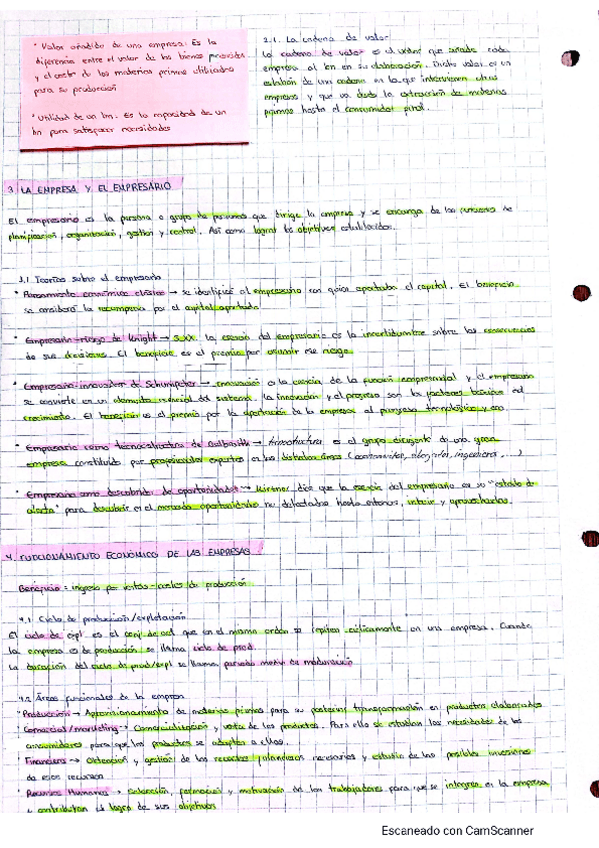 * Valor añadido de una empresa: Es la
diferencia entre el valor de los bienes producidos
y el coste de las materias primas utilizadas
para su producción
* Utilidad de un bn. Es la capacidad de un
bn para satisfacer necesidades
2.1. La cadena de valor
La cadena de valor es el valor que añade cada
empresa al bn en su elaboración. Dicho valor es un
eslabón de una cadena en la que intervienen otras
empresas y que va desde la extracción de materias
primas hasta el consumidor final.
3. LA EMPRESA Y EL EMPRESARIO
El empresario es la persona o grupo de personas que dirige la empresa y se encarga de las funciones de
planificación, organización, gestión y control. Así como lograr los objetivos establecidos.
3.1 Teorías sobre el empresario
* Pensamiento económico clásico → se identifica al empresario con quien aportaba el capital. El beneficio
se consideró la recompensa por el capital aportado
* Empresario-riesgo de Knight → S.XX. la esencia del empresario es la incertidumbre sobre las consecuencias
de sus decisiones. El beneficio es el premio por asumir ese riesgo.
* Empresario-innovador de Schumpeter → innovación es la esencia de la función empresarial y el empresario
se convierte en un elemento esencial del sistema. la innovación y el progreso son los factores básicos del
crecimiento. El beneficio es el premio por la aportación de la empresa al progreso tecnológico y eco.
* Empresario como tecnoestructura de Galbraith → tecnoestructura es el grupo dirigente de una gran
empresa constituido por profesionales expertos en las distintas áreas (economistas, abogados, ingenieros, ...)
* Empresario como descubridor de oportunidades → Kirzner dice que la esencia del empresario es su "estado de
alerta" para descubrir en el mercado oportunidades no detectadas hasta entonces, intuir y aprovecharlas.
4. FUNCIONAMIENTO ECONÓMICO DE LAS EMPRESAS
Beneficio = ingresos por ventas - costes de producción
4.1 Ciclo de producción/explotación
El ciclo de expl. es el conj. de act. que en el mismo orden se repiten cíclicamente en una empresa. Cuando
la empresa es de producción se llama ciclo de prod.
La duración del ciclo de prod/expl se llama periodo medio de maduración
4.2 Áreas funcionales de la empresa
* Producción → Aprovisionamiento de materias primas para su posterior transformación en productos elaborados.
* Comercial/marketing → Comercialización y venta de los productos. Para ello se estudian las necesidades de los
consumidores para que los productos se adapten a ellos.
* Financiera → Obtención y gestión de los recursos financieros necesarios y estudio de las posibles inversiones
de esos recursos
* Recursos Humanos → Selección, formación y motivación de los trabajadores para que se integren en la empresa
y contribuyan al logro de sus objetivos
Escaneado con CamScanner